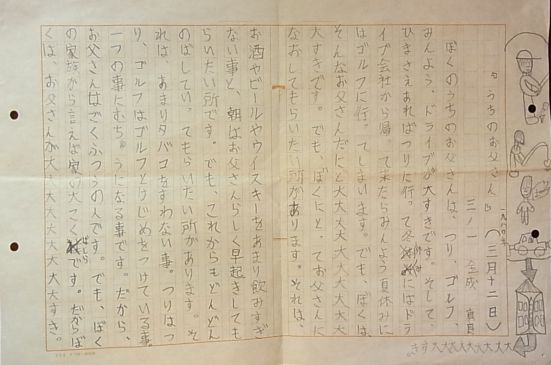 〝うちのお父さん〟(三月十二日)
一九八〇年
三ノ一 金成 真
ぼくのうちのお父さんは、つり、ゴルフ、
みんよう、ドライブが大すきです。そして、
ひまさえあればつりに行って冬にはドラ
イブ会社から帰って来たらみんよう夏休みに
はゴルフに行ってしまいます。でも、ぼくは、
そんなお父さんだにと大大大大大大大大大大
大すきです。でも、ぼくにと、てお父さんに
なおしてもらいたい所があります。それは、
お酒やビールやウイスキーをあまり飲みすぎ
ない事と、朝はお父さんらしく早起きしても
らいたい所です。でも、これからもどんどん
のばしてい、てもらいたい所があります。そ
れは、あまりタバコをすわない事。つりはつ
り、ゴルフはゴルフとけじめをつけている事。
一つの事にむちゅうになる事です。だから、
お父さんはごくふつうの人です。でも、ぼく
の家族から言えば家の大こくばしらです。だからぼ
くは、お父さんが大大大大大大大大大大すき。
大大大大大大大大すき。